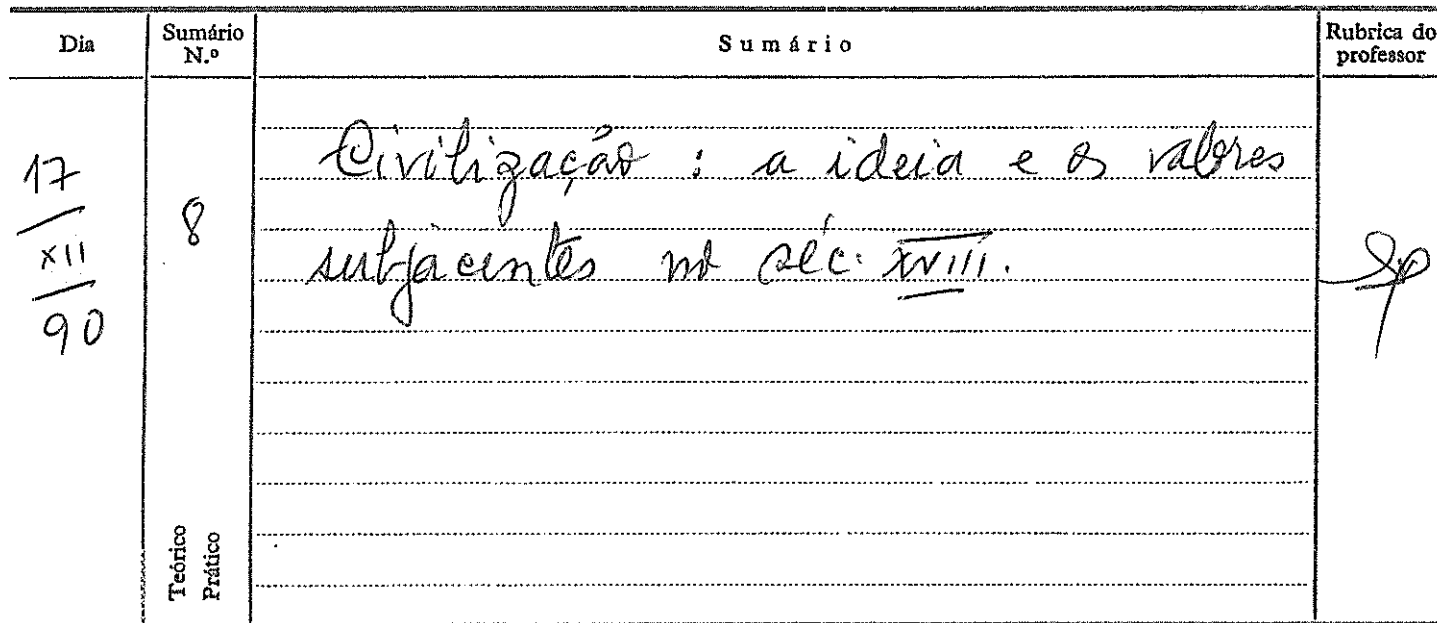 Dia
Sumário
N.º
Sumário
Rubrica do
professor
17
XII
90
8
Civilização : a ideia e os valores
subjacentes no séc. XVIII.
Teórico
Prático